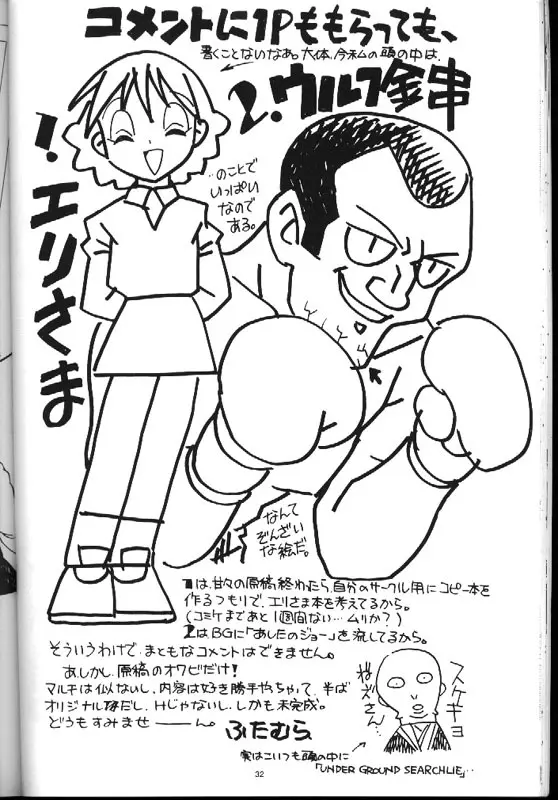 コメントに1Pももらっても、
書くことないなあ。大体、今私の頭の中は、
1.エリさま
2.ウルフ金串
…のことで
いっぱい
なので
ある。
なんて
ぞんざい
な絵だ。
1は、甘々の原稿終わったら、自分のサークル用にコピー本を
作るつもりで、エリさま本を考えてるから。
(コミケまであと1週間ない…ムリか?)
2はBGに「あしたのジョー」を流してるから。
そういうわけで、まともなコメントはできません。
あ、しかし、原稿のオワビだけ!
マルチは似ないし、内容は好き勝手やっちゃって、半ば
オリジナル状態だし、Hじゃないし、しかも未完成。
どうもすみませ――ん。
ふたむら
スケキヨ
ねえさん…
実はこいつも頭の中に
「UNDER GROUND SEARCHLIE」…
32